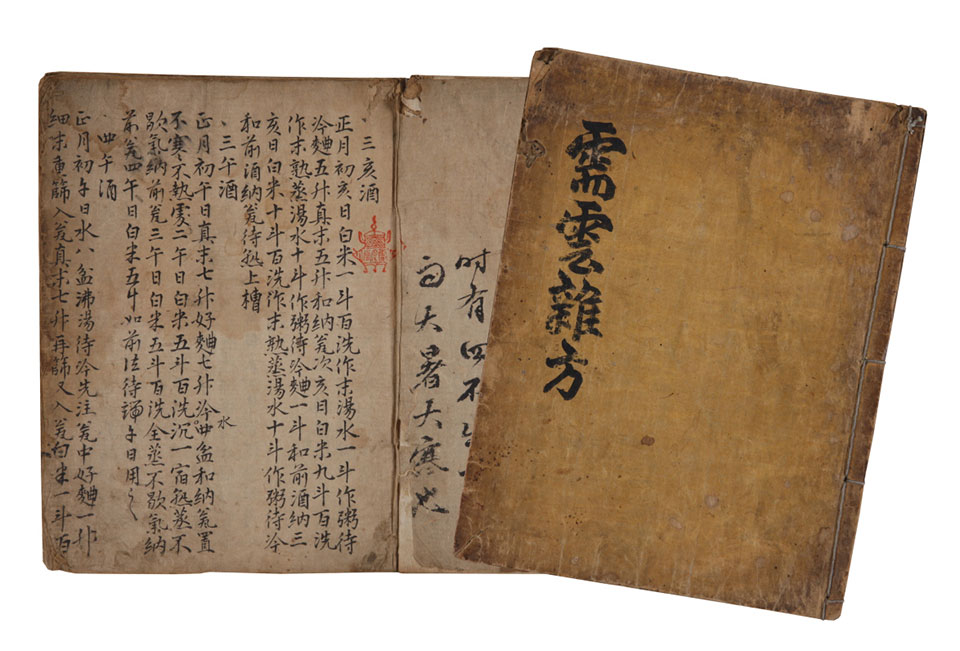 需雲雜方
时有四不
大暑大寒也
三亥酒
正月初亥日白米一斗百洗作末湯水一斗作粥待
冷麯五升真末五升和納瓮次亥日白米九斗百洗
作末熟蒸湯水十斗作粥待冷麯一斗和前酒納三
亥日白米十斗百洗作末熟蒸湯水十斗作粥待冷
和前酒納瓮待熟上槽
三午酒
正月初午日真末七升好麯七升冷水四盆和納瓮置
不寒不熱處二午日白米五斗百洗沉一宿熟蒸不
歇氣納前瓮三午日白米五斗百洗全蒸不歇氣納
前瓮四午日白米五斗如前法待端午日用之
四午酒
正月初午日水八盆沸湯待冷先注瓮中好麯一升
細末重篩入瓮真末七升再篩又入瓮白米一斗百